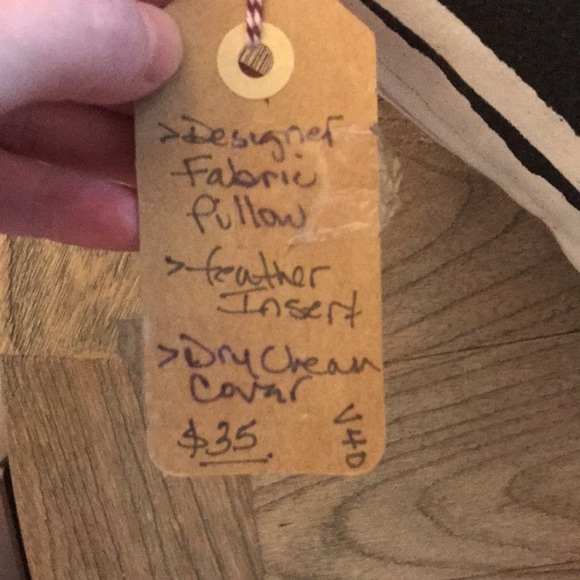 >Designer
Fabric
Pillow
>feather
Insert
>Dry Clean
Cover
$35.